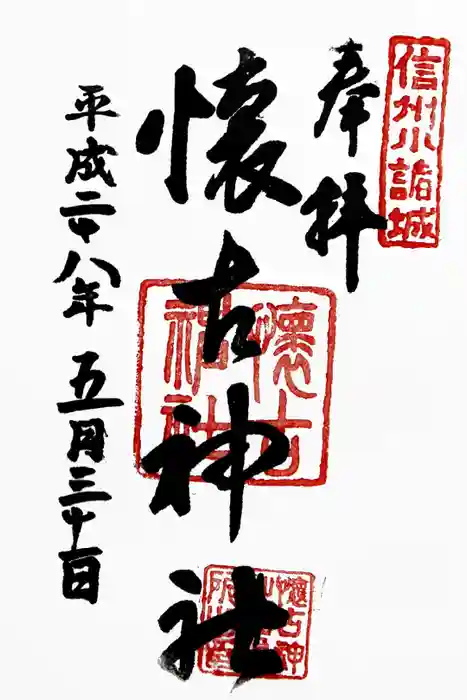 信州小諸城
奉拝
懐古神社
懐古神社
平成二十八年五月三十一日